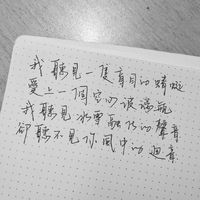 我聽見一隻盲目的蜻蜓
愛上一個空的玻璃瓶
我聽見冰雪融化的聲音
卻聽不見你風中的迴音